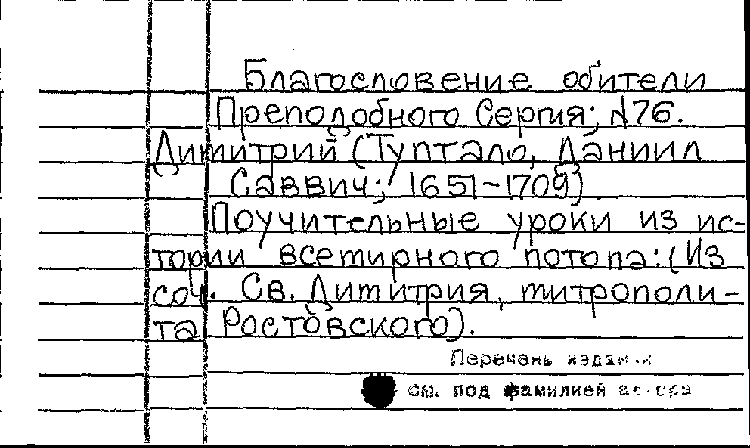 Благословение обители
Преподобного Сергия; №76.
Димитрий (Туптало, Даниил
Саввич; 1651-1709)
Поучительные уроки из ис-
тории всемирного потопа: (Из
соч. Св. Димитрия, митрополи-
та Ростовского).
Перечень издани й
см. под фамилией автора